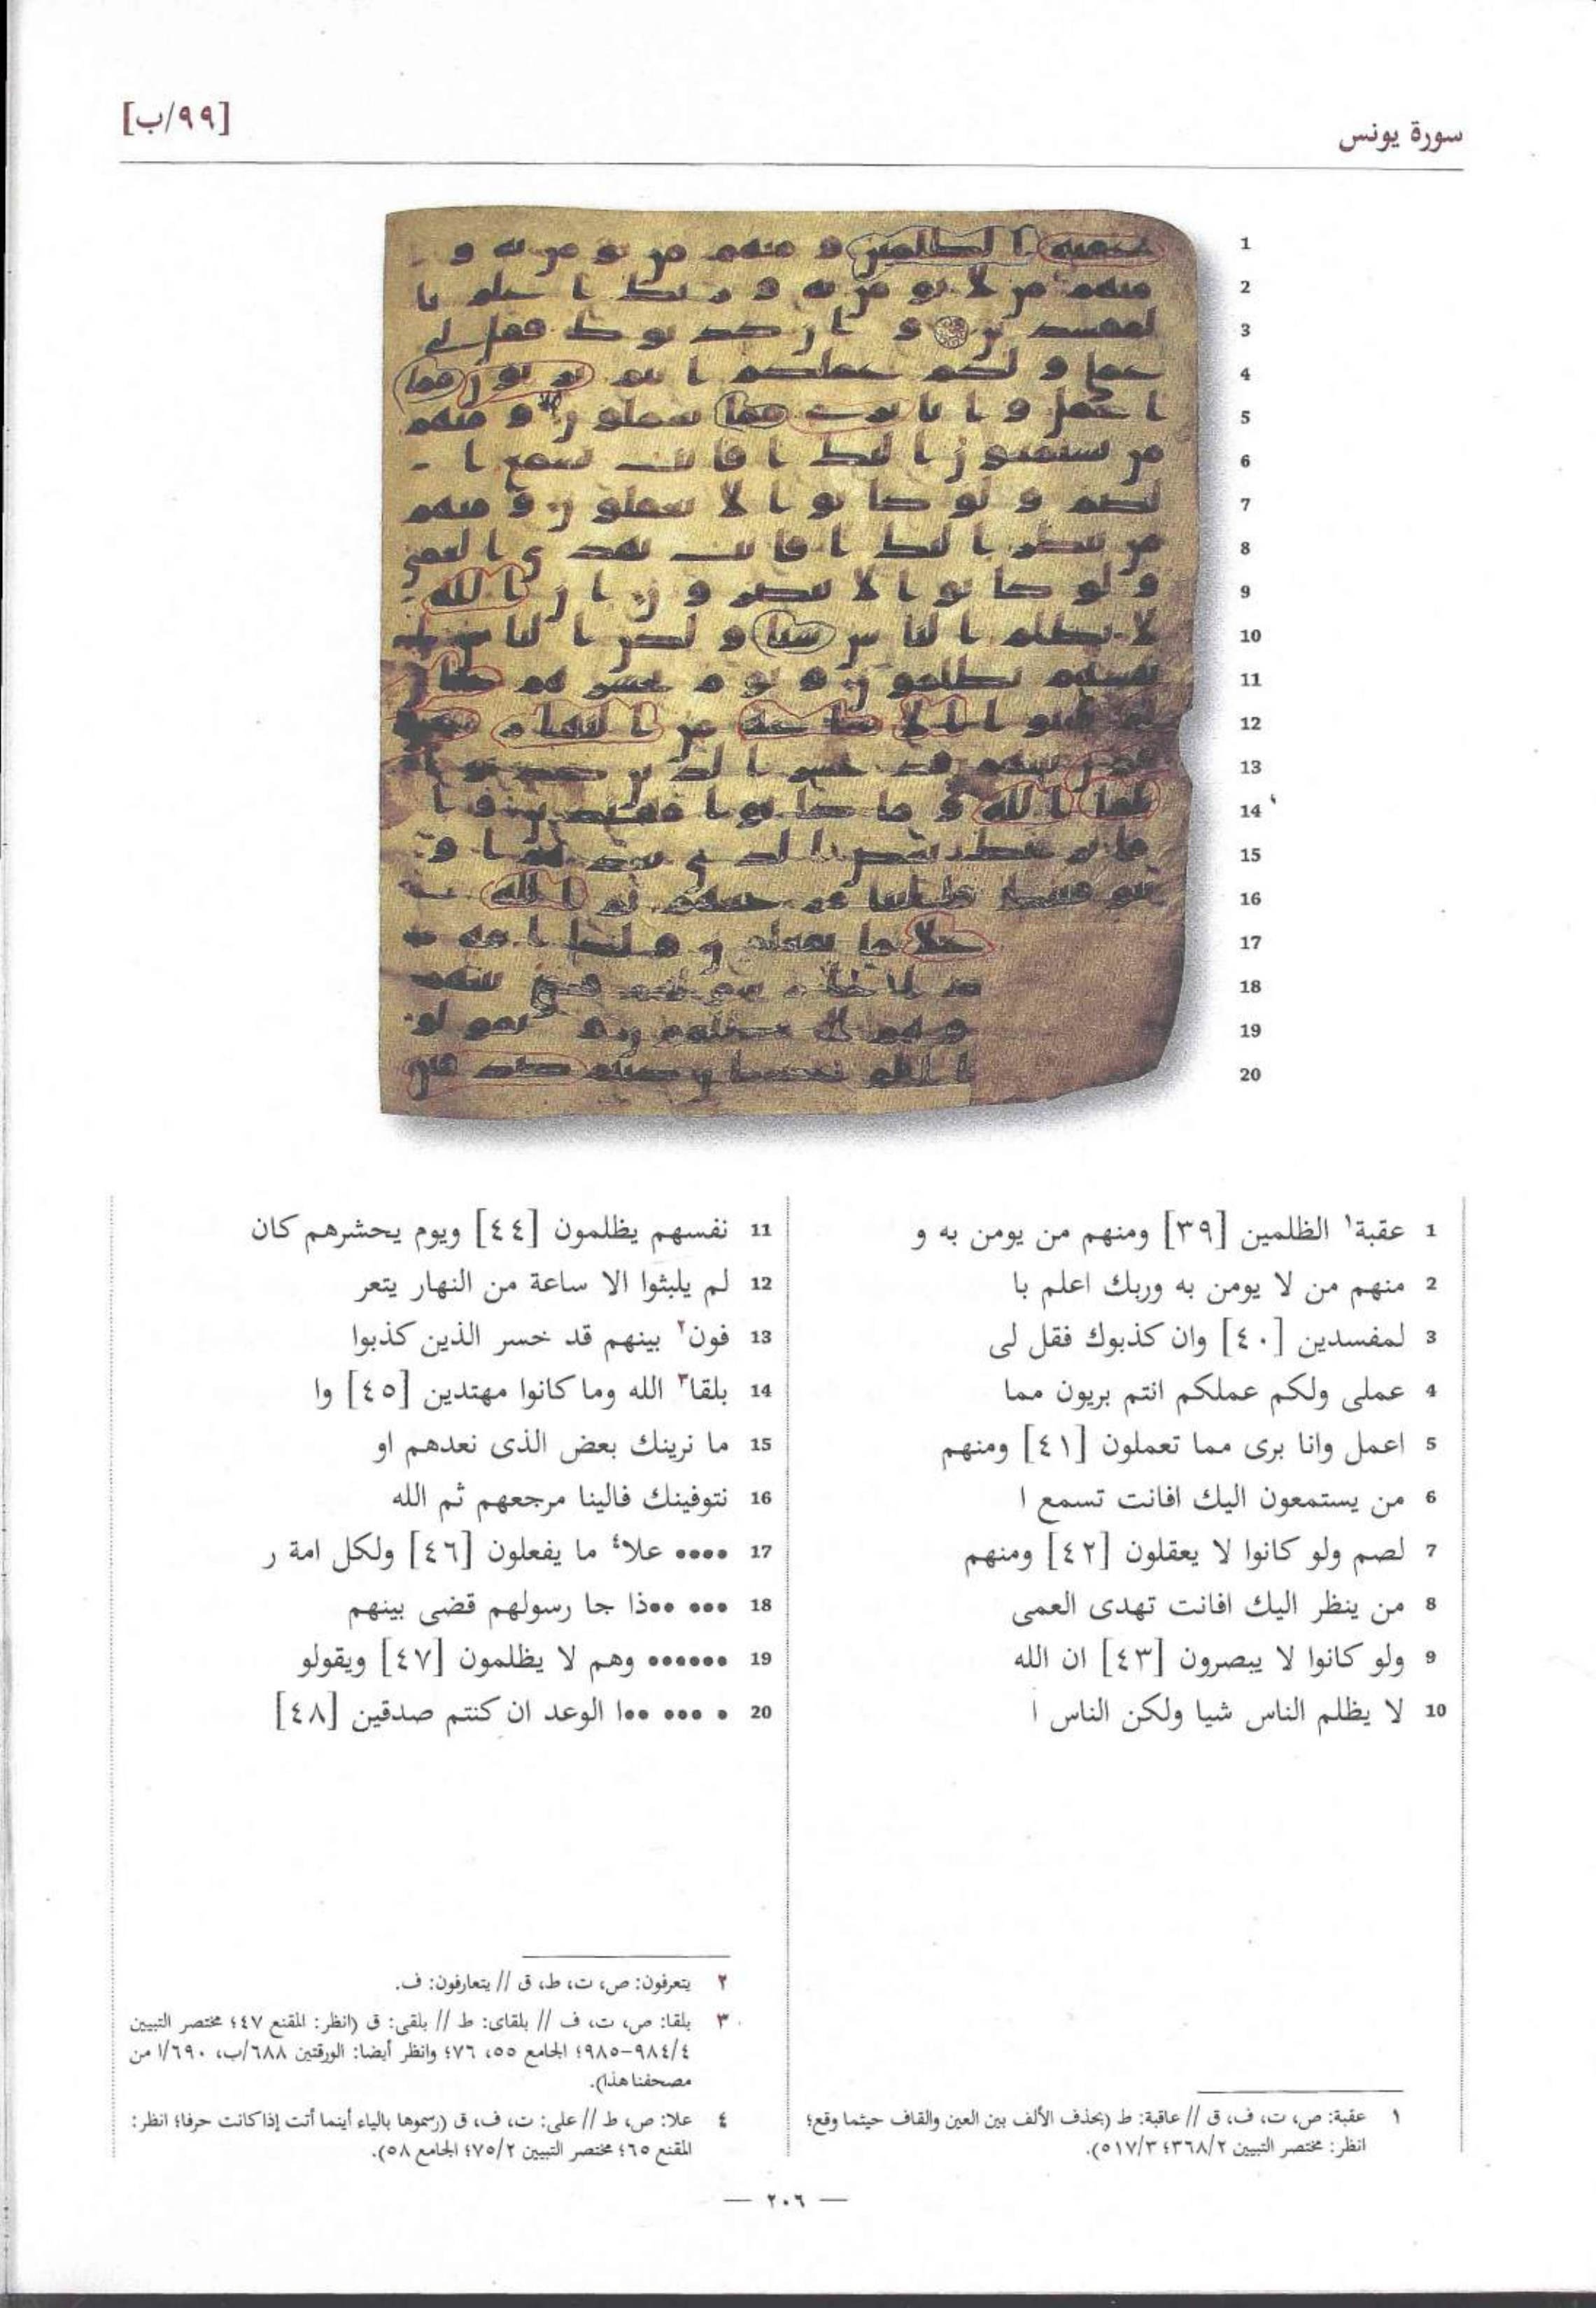 سورة يونس
[٩٩/ب]
1 عقبة١ الظلمين [٣٩] ومنهم من يومن به و
2 منهم من لا يومن به وربك اعلم با
3 لمفسدين [٤٠] وان كذبوك فقل لى
4 عملى ولكم عملكم انتم بريون مما
5 اعمل وانا برى مما تعملون [٤١] ومنهم
6 من يستمعون اليك افانت تسمع ا
7 لصم ولو كانوا لا يعقلون [٤٢] ومنهم
8 من ينظر اليك افانت تهدى العمى
9 ولو كانوا لا يبصرون [٤٣] ان الله
10 لا يظلم الناس شيا ولكن الناس ا
11 نفسهم يظلمون [٤٤] ويوم يحشرهم كان
12 لم يلبثوا الا ساعة من النهار يتعر
13 فون٢ بينهم قد خسر الذين كذبوا
14 بلقا٣ الله وما كانوا مهتدين [٤٥] وا
15 ما نرينك بعض الذى نعدهم او
16 نتوفينك فالينا مرجعهم ثم الله
17 •••• علا٤ ما يفعلون [٤٦] ولكل امة ر
18 ••• ••ذا جا رسولهم قضى بينهم
19 •••••• وهم لا يظلمون [٤٧] ويقولو
20 • ••• ••ا الوعد ان كنتم صدقين [٤٨]
١ عقبة: ص، ت، ف، ق // عاقبة: ط (بحذف الألف بين العين والقاف حيثما وقع؛
انظر: مختصر التبيين ٣٦٨/٢؛ ٥١٧/٣).
٢ يتعرفون: ص، ت، ط، ق // يتعارفون: ف.
٣ بلقا: ص، ت، ف // بلقاى: ط // بلقى: ق (انظر: المقنع ٤٧؛ مختصر التبيين
٩٨٤/٤-٩٨٥؛ الجامع ٥٥، ٧٦؛ وانظر أيضا: الورقتين ٦٨٨/ب، ٦٩٠/ا من
مصحفنا هذا).
٤ علا: ص، ط // على: ت، ف، ق (رسموها بالياء أينما أتت إذا كانت حرفا؛ انظر:
المقنع ٦٥؛ مختصر التبيين ٧٥/٢؛ الجامع ٥٨).
— ٢٠٦ —